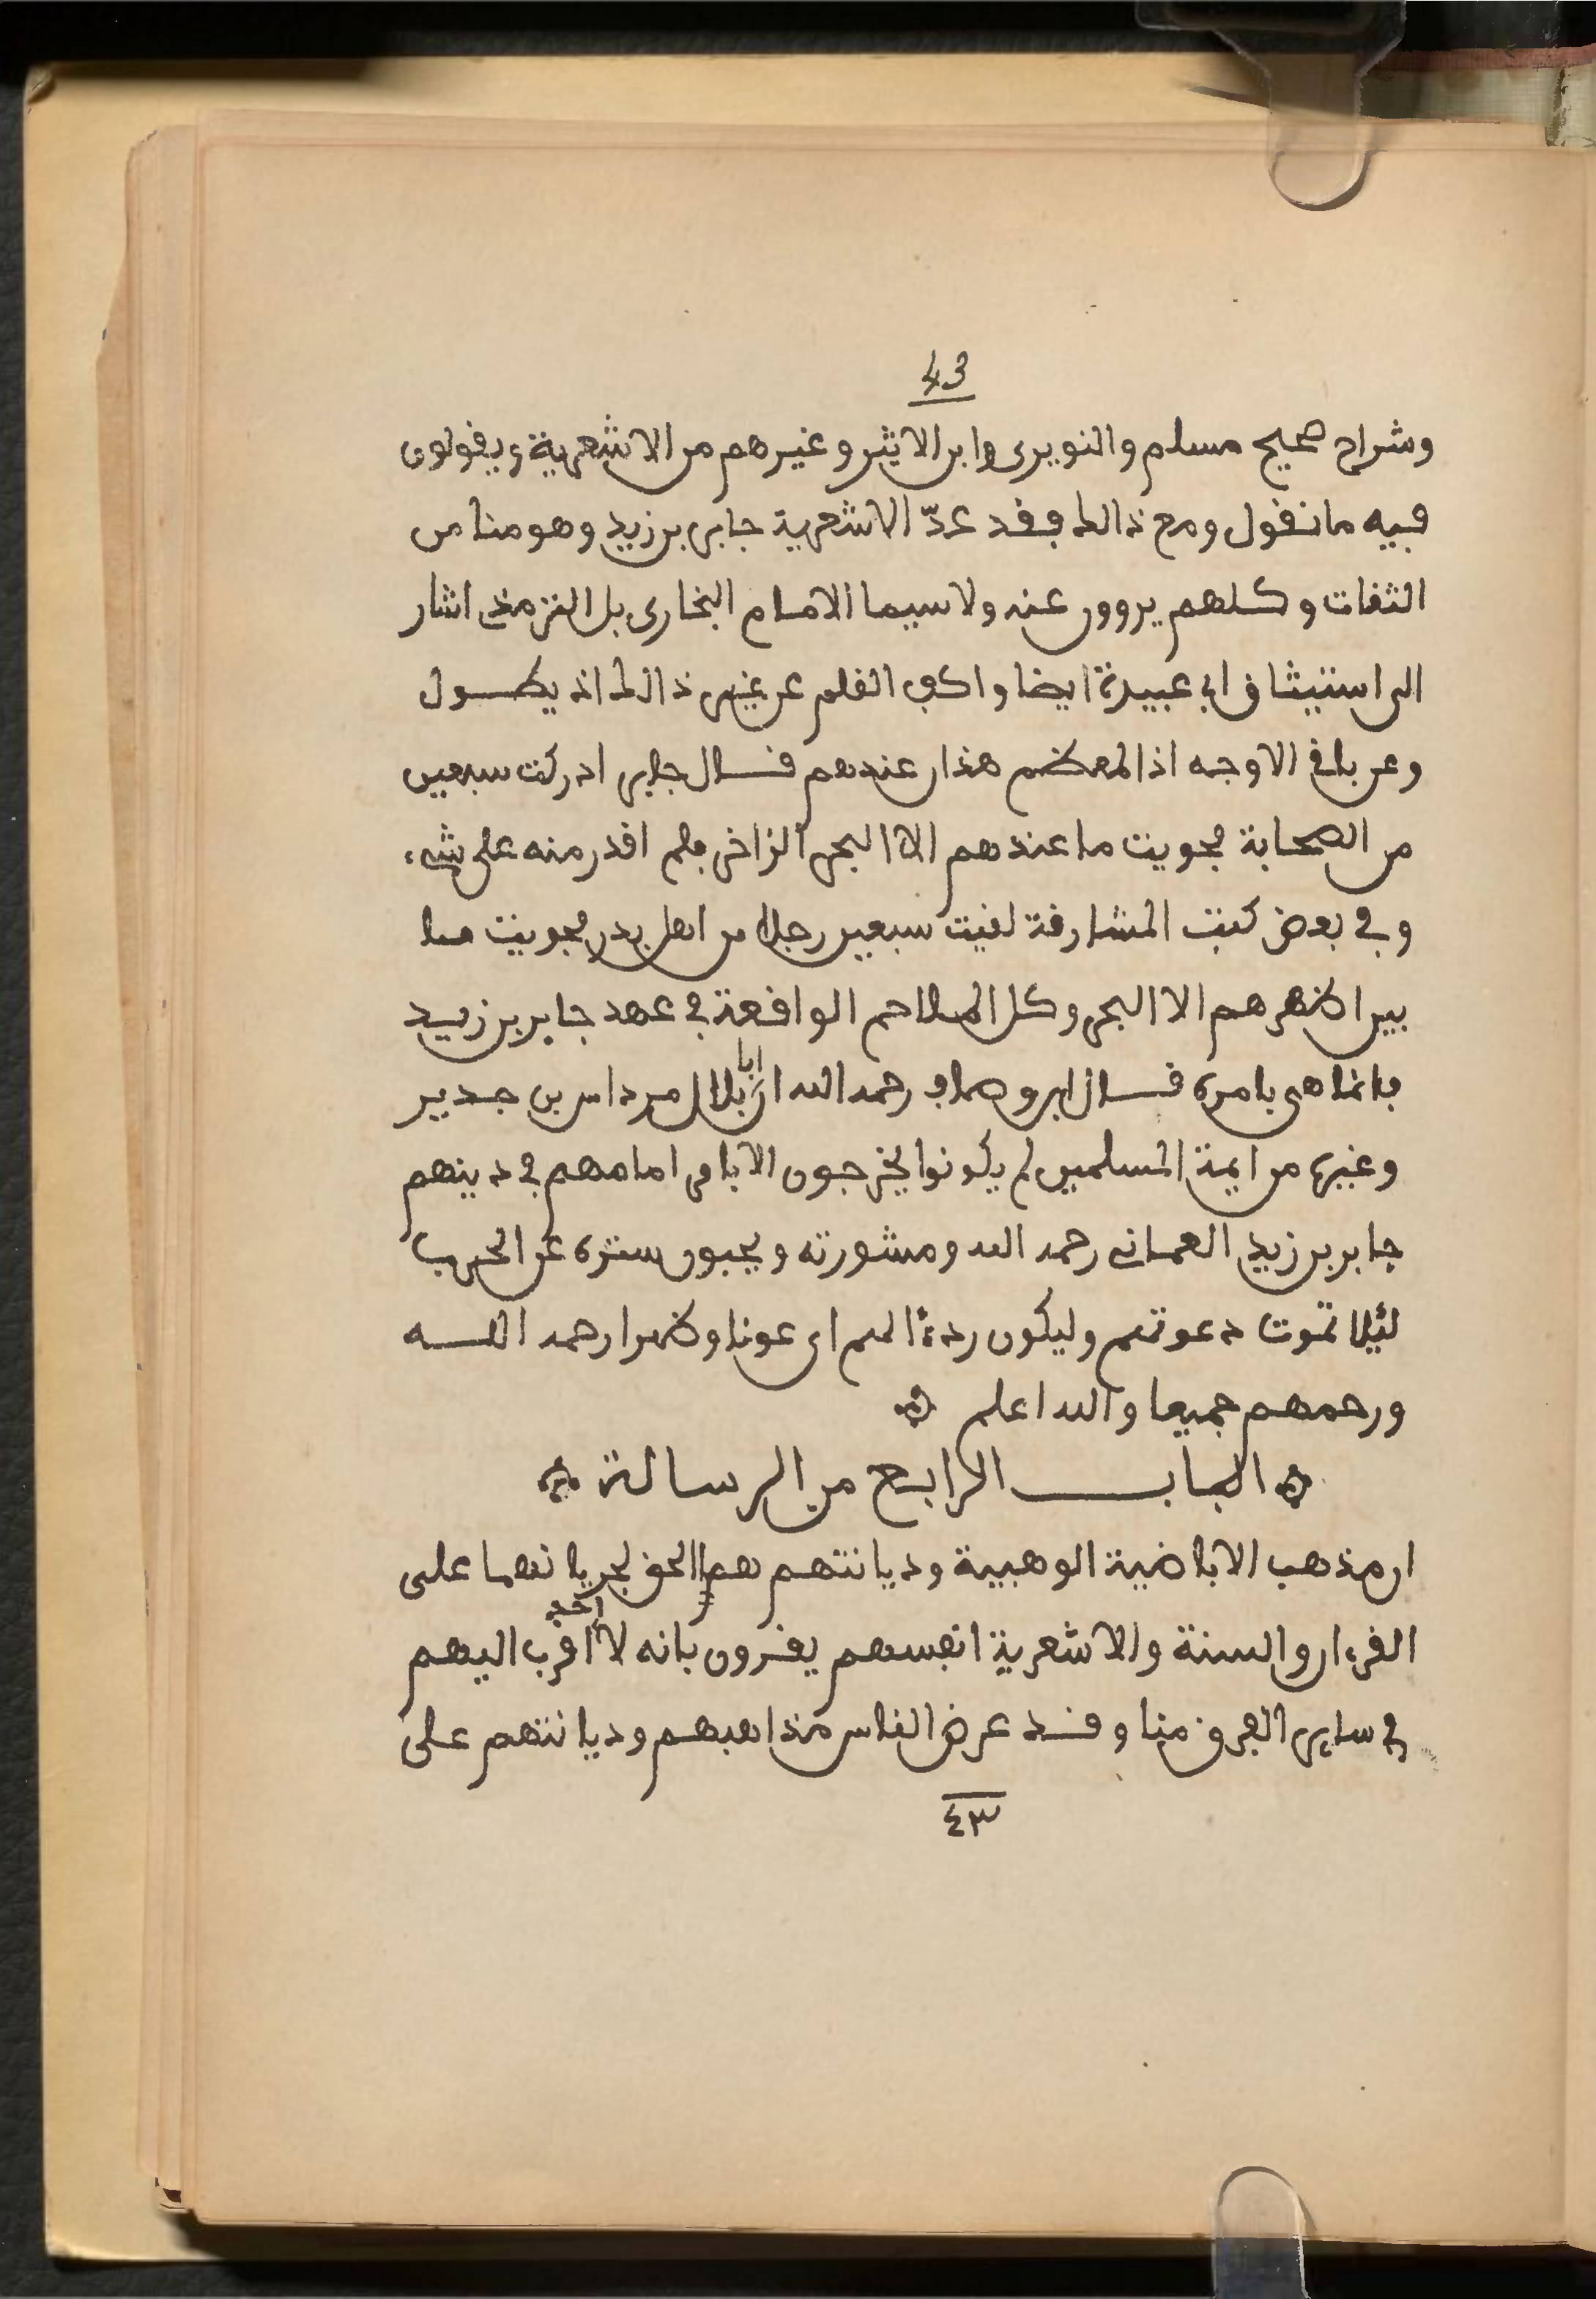 43
وشراح صحيح مسلم والنويرى وابن الاثير وغيرهم من الاشعرية ويقولون
فيه ما نقول ومع ذالك فقد عدّ الاشعرية جابر بن زيد وهو منا من
الثقات وكلهم يروون عنه ولا سيما الامام البخارى بل الترمذى اشار
الى استيثاق ابى عبيدة ايضا واكف القلم عن غير ذالك اذ يطول
وعن باقى الاوجه اذ المعظم هذان عندهم قال جابر ادركت سبعين
من الصحابة فحويت ما عندهم الا البحر الزاخر فلم اقدر منه على شىء
وفى بعض كتب المشارقة لقيت سبعين رجلا من اهل بدر فحويت ما
بين اظهرهم الا البحر وكل الملاحم الواقعة فى عهد جابر بن زيد
فانما هى بامره قال ابن وصاف رحمه الله ان ابا بلال مرداس بن جدير
وغيره من ايمة المسلمين لم يكونوا يخرجون الا بامر امامهم فى دينهم
جابر بن زيد العمانى رحمه الله ومشورته ويحبون ستره عن الحرب
لئلا تموت دعوتهم وليكون ردءًا لهم اى عونا وظهرا رحمه الله
ورحمهم جميعا والله اعلم
الباب الرابع من الرسالة
ان مذهب الاباضية الوهبية وديانتهم هما الحق لجريانهما على
القرءان والسنة والاشعرية انفسهم يقرون بانه لا احد اقرب اليهم
فى ساير الفرق منا وقد عرض الناس مذاهبهم وديانتهم على
٤٣